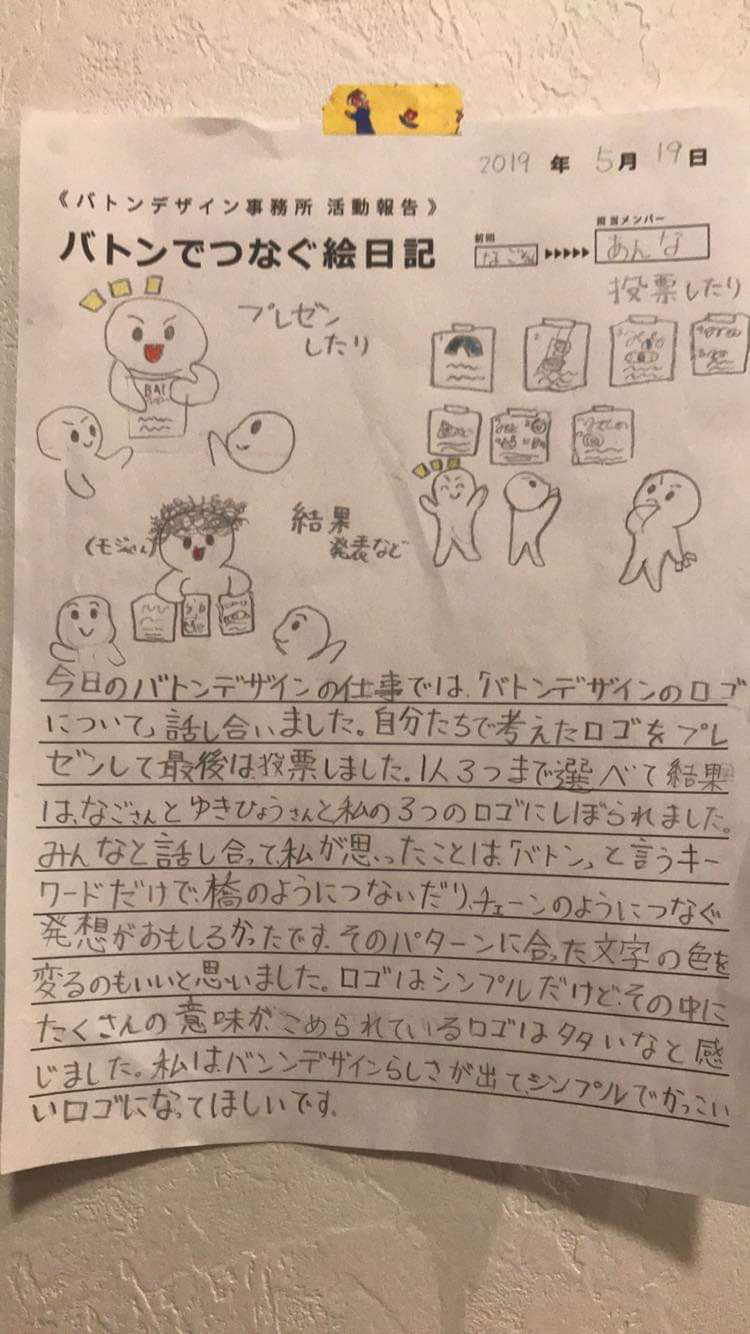 2019 年 5月 19日
《バトンデザイン事務所 活動報告》
バトンでつなぐ絵日記
前回
なごさん
▶▶▶▶▶
担当メンバー
あんな
プレゼン
したり
投票したり
結果
発表など
今日のバトンデザインの仕事では、「バトンデザインのロゴ
について」話し合いました。自分たちで考えたロゴをプレ
ゼンして最後は投票しました。1人3つまで選べて結果
は、なごさんとゆきひょうさんと、私の3つのロゴにしぼられました。
みんなと話し合って、私が思ったことは、「バトン」と言うキー
ワードだけで、橋のようにつないだり、チェーンのようにつなぐ
発想がおもしろかったです。そのパターンに合った文字の色を
変るのもいいと思いました。ロゴはシンプルだけど、その中に
たくさんの意味がこめられているロゴは多いなと感
じました。私は、バンンデザインらしさが出て、シンプルでかっこい
いロゴになってほしいです。